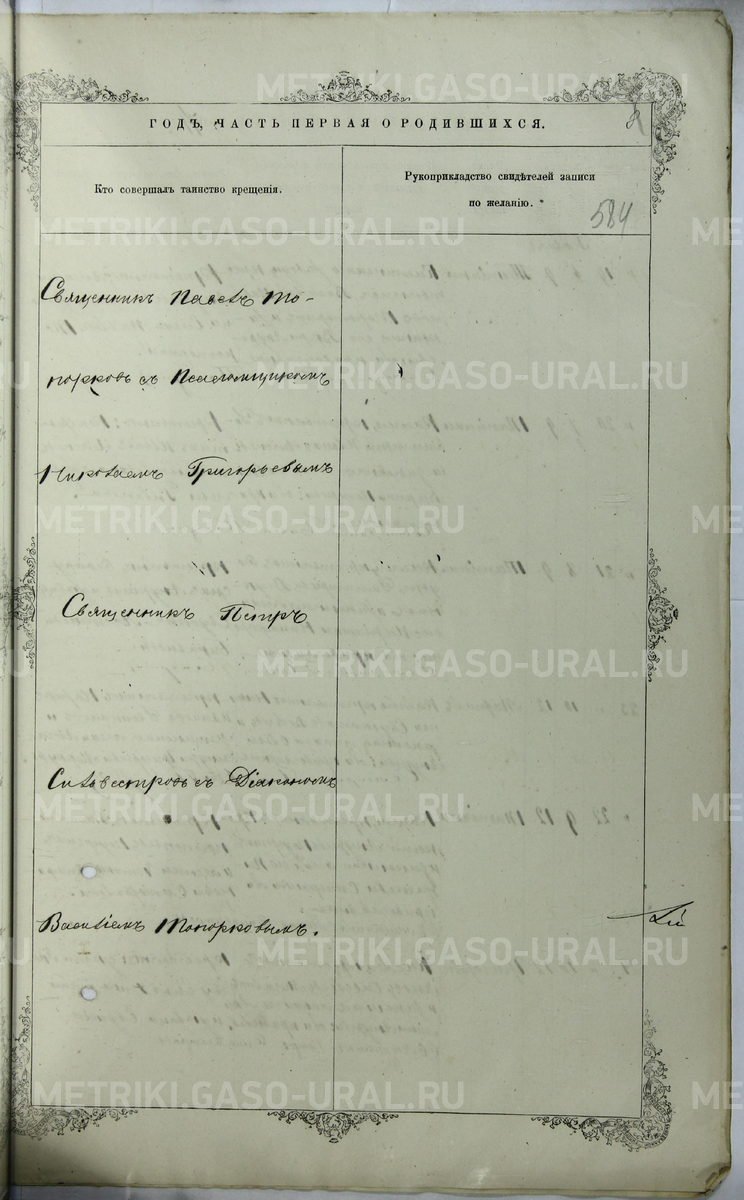 ГОДЪ, ЧАСТЬ ПЕРВАЯ О РОДИВШИХСЯ.
8
Кто совершалъ таинство крещенія.
Рукоприкладство свидѣтелей записи
по желанію.
584
Священникъ Павелъ То-
порковъ съ Псаломщикомъ
Николаемъ Григорьевымъ
Священникъ Петръ
Сильвестровъ съ Діакономъ
Василіемъ Топорковымъ.
METRIKI.GASO-URAL.RU